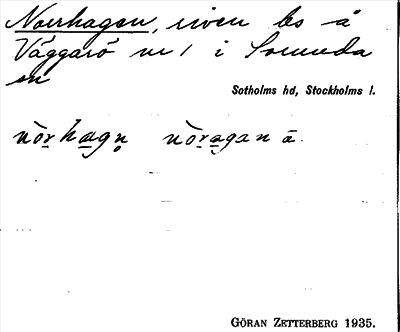 Norrhagen, riven bs å
Väggarö nr 1 i Sorunda
sn
Sotholms hd, Stockholms l.
nòrhagn nòragan ā.
GÖRAN ZETTERBERG 1935.